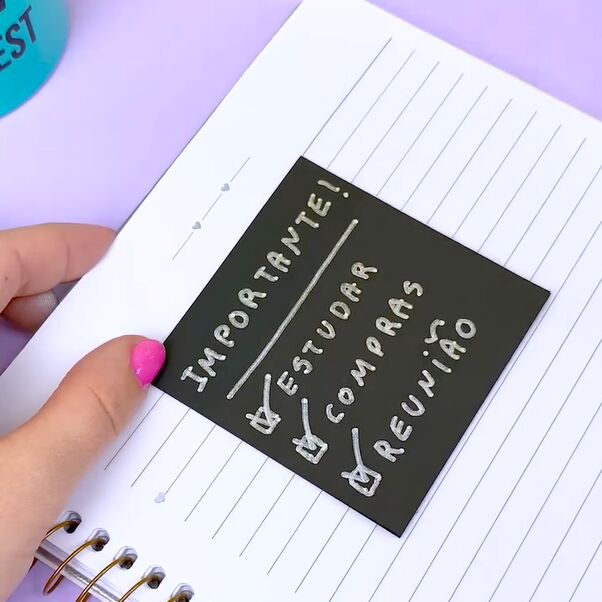 EST
IMPORTANTE!
ESTUDAR
COMPRAS
REUNIÃO